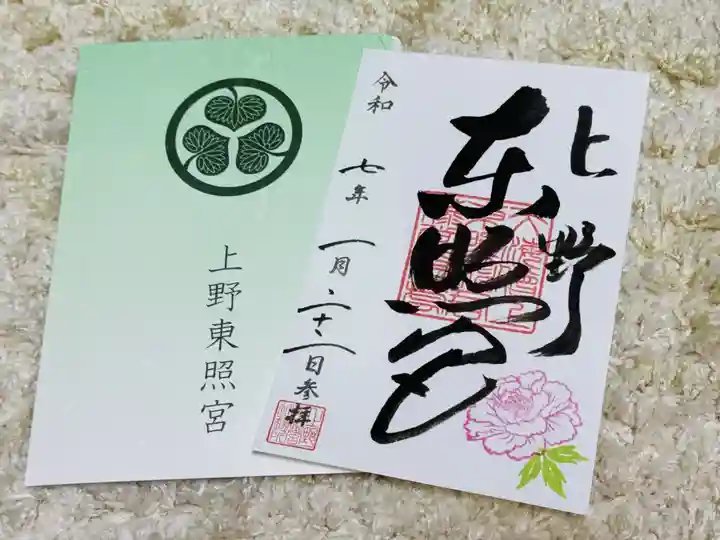 上野東照宮
上野
東照宮
令和
七年
一月
二十一日参拝